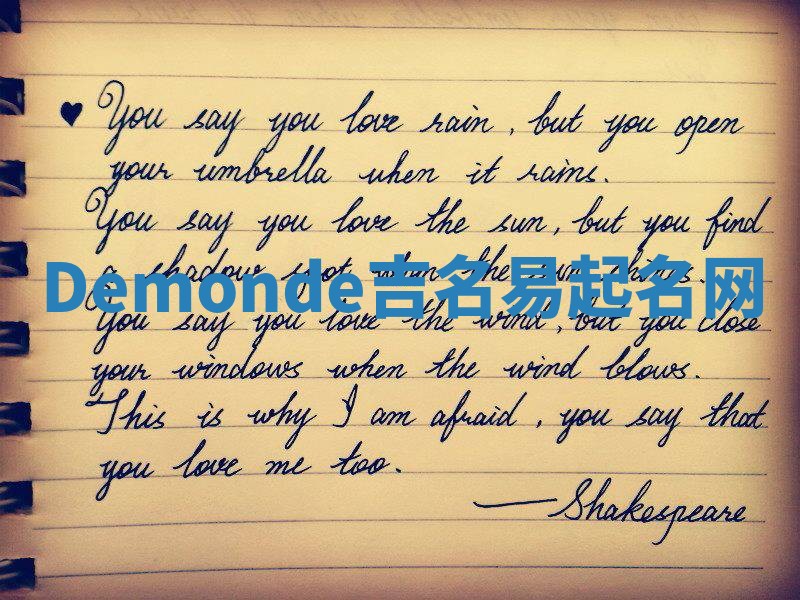 You say you love rain, but you open
your umbrella when it rains.
You say you love the sun, but you find
a shadow spot when the sun shines.
Demonde吉名易起名网
You say you love the wind, but you close
your windows when the wind blows.
This is why I am afraid, you say that
you love me too.
—Shakespeare